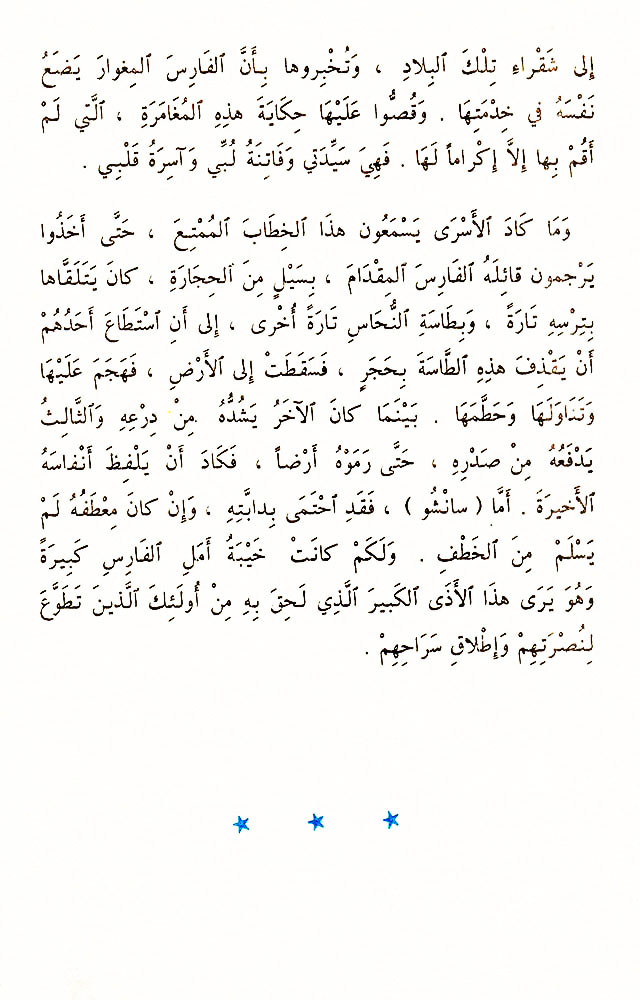 إِلى شَقْراءِ تِلْكَ ٱلبِلادِ ، وَتُخْبِروها بِـأَنَّ ٱلفَارِسَ ٱلمِغوارَ يَضَعُ
نَفْسَهُ في خِدْمَتِهَا . وَقُصُّوا عَلَيْهَا حِكَايَةَ هذِهِ ٱلمُغَامَرَةِ ، ٱلَّتي لَمْ
أَقُمْ بِها إِلاَّ إِكْراماً لَهَا . فَهِيَ سَيِّدَتي وَفَاتِنَةُ لُبِّي وَآسِرَةُ قَلْبِـي .
وَمَا كَادَ ٱلأَسْرَى يَسْمَعُون هذَا ٱلخِطَابَ ٱلمُمْتِـعَ ، حَتَّى أَخَذُوا
يَرْجمون قائِلَهُ ٱلفَارِسَ ٱلمِقْدَامَ ، بِسَيْلٍ مِنَ ٱلحِجَارَةِ ، كانَ يَتَلَقَّاها
بِتِرْسِهِ تَارَةً ، وَبِطَاسَةِ ٱلنُّحَاسِ تَارَةً أُخْرى ، إِلى أَنِ ٱسْتَطَاعَ أَحَدُهُمْ
أَنْ يَقْذِفَ هذِهِ ٱلطَّاسَةَ بِحَجَرٍ ، فَسَقَطَتْ إِلى ٱلأَرْضِ ، فَهَجَمَ عَلَيْهَا
وَتَنَاوَلَهَا وَحَطَّمَهَا . بَيْنَمَا كانَ ٱلآخَرُ يَشُدُّهُ مِنْ دِرْعِهِ وَٱلثَّالِثُ
يَدْفَعُهُ مِنْ صَدْرِهِ ، حَتَّى رَمَوْهُ أَرْضاً ، فَكَادَ أَنْ يَلْفِظَ أَنْفاسَهُ
ٱلأَخيرَةَ . أَمَّا ( سانْشُو ) ، فَقَدِ ٱحْتَمَى بِدابَّتِهِ ، وَإِنْ كانَ مِعْطَفُهُ لَمْ
يَسْلَمْ مِنَ ٱلخَطْفِ . وَلَكَمْ كانَتْ خَيْبَةُ أَمَلِ ٱلفَارِسِ كَبِيرَةً
وَهُوَ يَرَى هذَا ٱلأَذَى ٱلكَبيرَ ٱلَّذِي لَحِقَ بِهِ مِنْ أُولَئِكَ ٱلَّذينَ تَطَوَّعَ
لِنُصْرَتِهِمْ وَإِطْلاقِ سَرَاحِهِمْ .